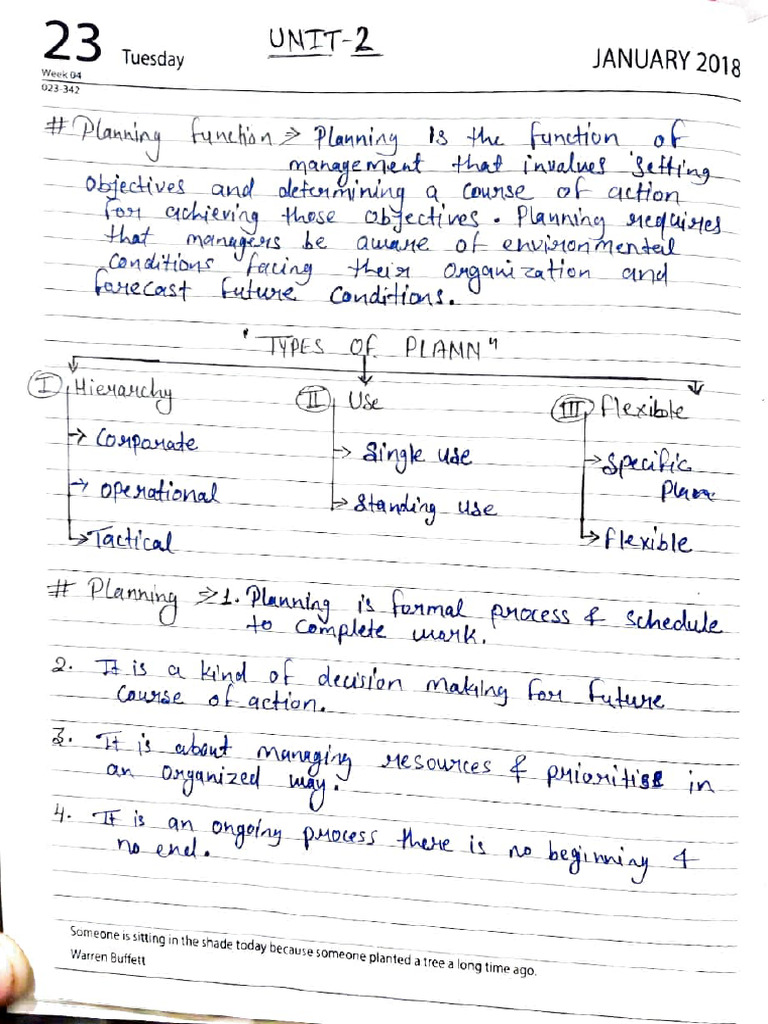 23 Tuesday UNIT-2 JANUARY 2018
Week 04
023-342
# Planning function => Planning is the function of
management that involves setting
objectives and determining a course of action
for achieving those objectives. Planning requires
that managers be aware of environmental
conditions facing their organization and
forecast future conditions.
"TYPES OF PLANN"
I Hierarchy II Use III Flexibole
→ Corporate → Single use → Specific
Plan
→ Operational → Standing use
→ Tactical → flexible
# Planning => 1. Planning is formal process & schedule
to complete work.
2. It is a kind of decision making for future
course of action.
3. It is about managing resources & priorities in
an organized way.
4. It is an ongoing process there is no beginning &
no end.
Someone is sitting in the shade today because someone planted a tree a long time ago.
Warren Buffett